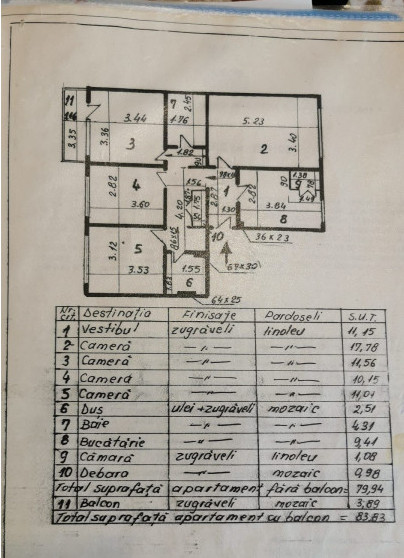 11
1.16
3.35
3.36
3.44
3
7
2.45
1.76
5.23
2
3.40
1.82
90
2.82
4
3.60
1.56
4.20
1
2.87
2.82
90
1.38
9
78
1.41
3.84
8
1.30
10
36x23
67x30
3.12
5
3.53
1.55
6
64x25
Nr. crt. Destinația Finisaje Pardoseli S.U.T.
1 Vestibul zugrăveli linoleu 11,15
2 Cameră —"— —"— 17,78
3 Cameră —"— —"— 11,56
4 Cameră —"— —"— 10,15
5 Cameră —"— —"— 11,01
6 Duș ulei+zugrăveli mozaic 2,51
7 Baie —"— —"— 4,31
8 Bucătărie —"— —"— 9,41
9 Cămară zugrăveli linoleu 1,08
10 Debara —"— mozaic 0,98
Total suprafață apartament fără balcon= 79,94
11 Balcon zugrăveli mozaic 3,89
Total suprafață apartament cu balcon = 83,83